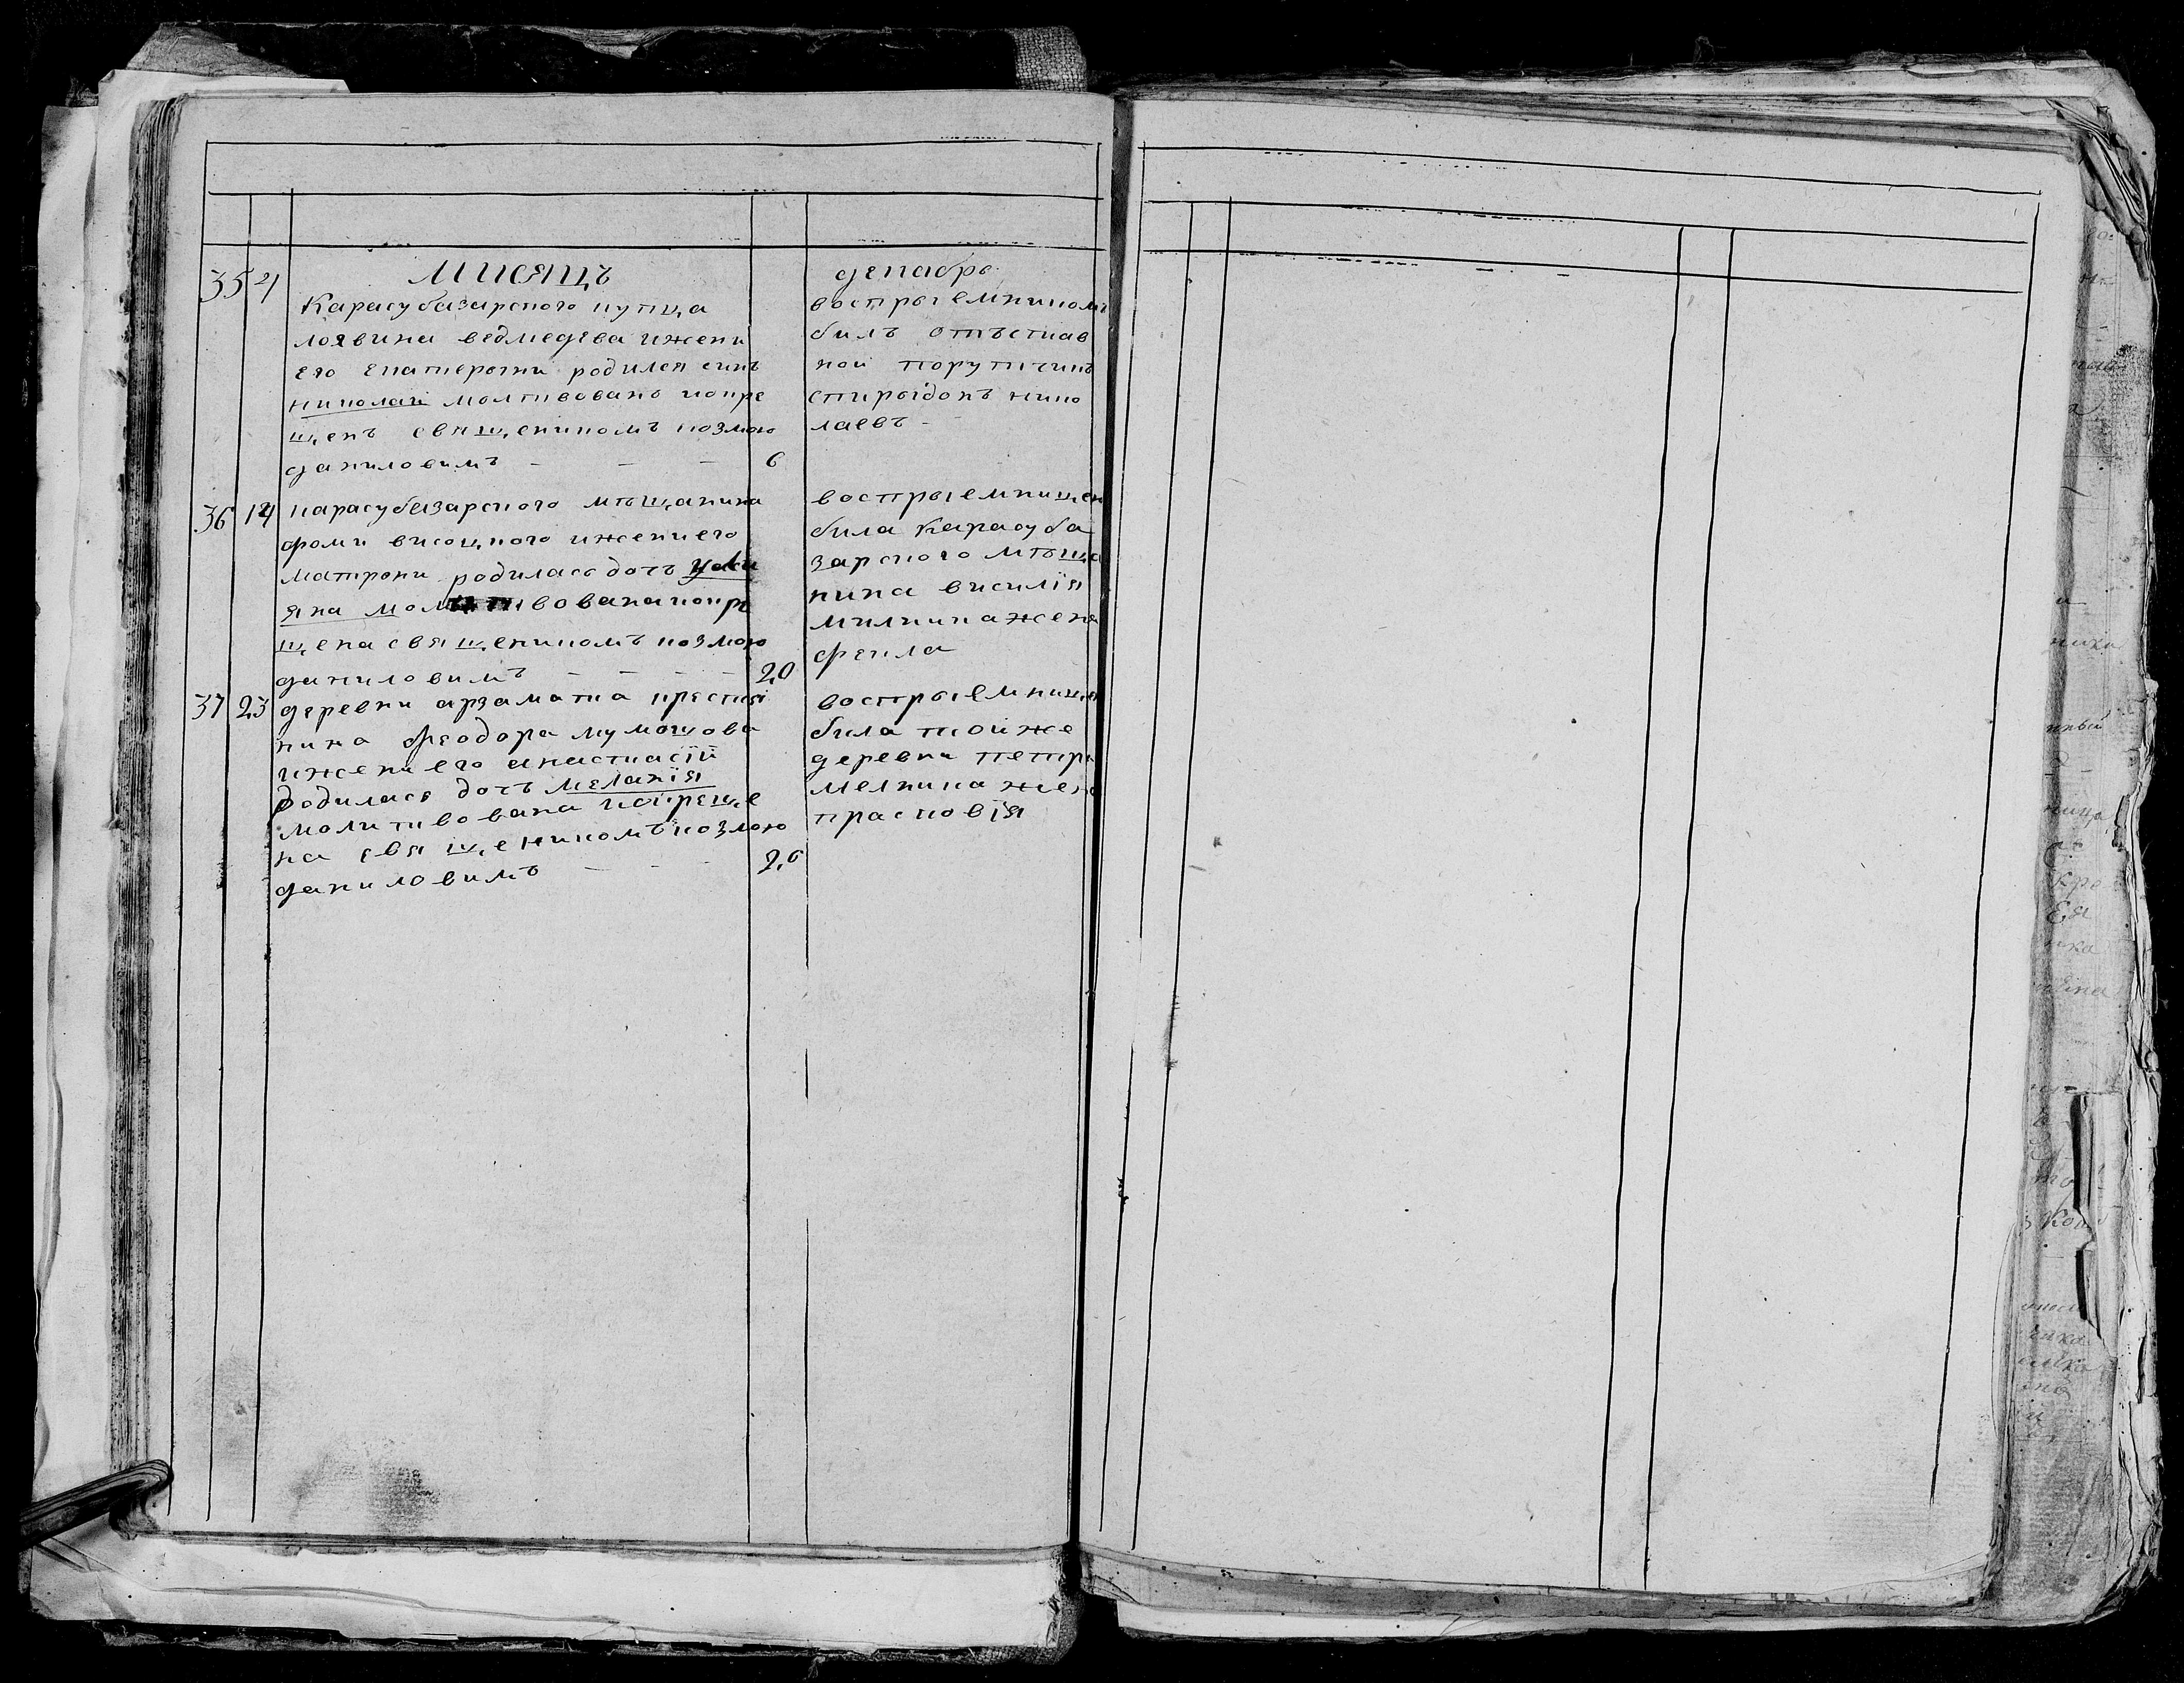 мисяцъ
декабрь
35 4
Карасубазарского купца
логвина ведмедева ижени
его екатерыни родился синъ
николай молтвованъ икре
щенъ священикомъ козмою
даниловимъ - - - 6
воспрыемникомъ
билъ отъстав
ной порутчикъ
спирыдонъ нико
лаевъ -
36 14
карасубазарского мѣщанина
фоми висоцкого ижениего
матрони родилась дочъ
яна молитвована икре
щена священикомъ козмою
даниловимъ - - - 20
воспрыемницею
била Карасуба
зарского мѣща
нина василія
милкина жена
фекла
37 23
деревни арзамата крестья
нина феодора
ижени его анастасій
родилась дочъ меланія
молитвована икреще
на священикомъ козмою
даниловимъ - - - 20
воспрыемницею
била тойже
деревни петра
мелкина жена
прасковія